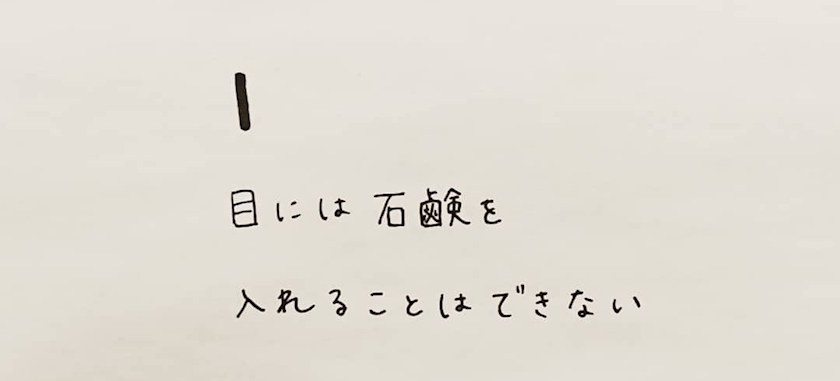 1
目には石鹸を
入れることはできない